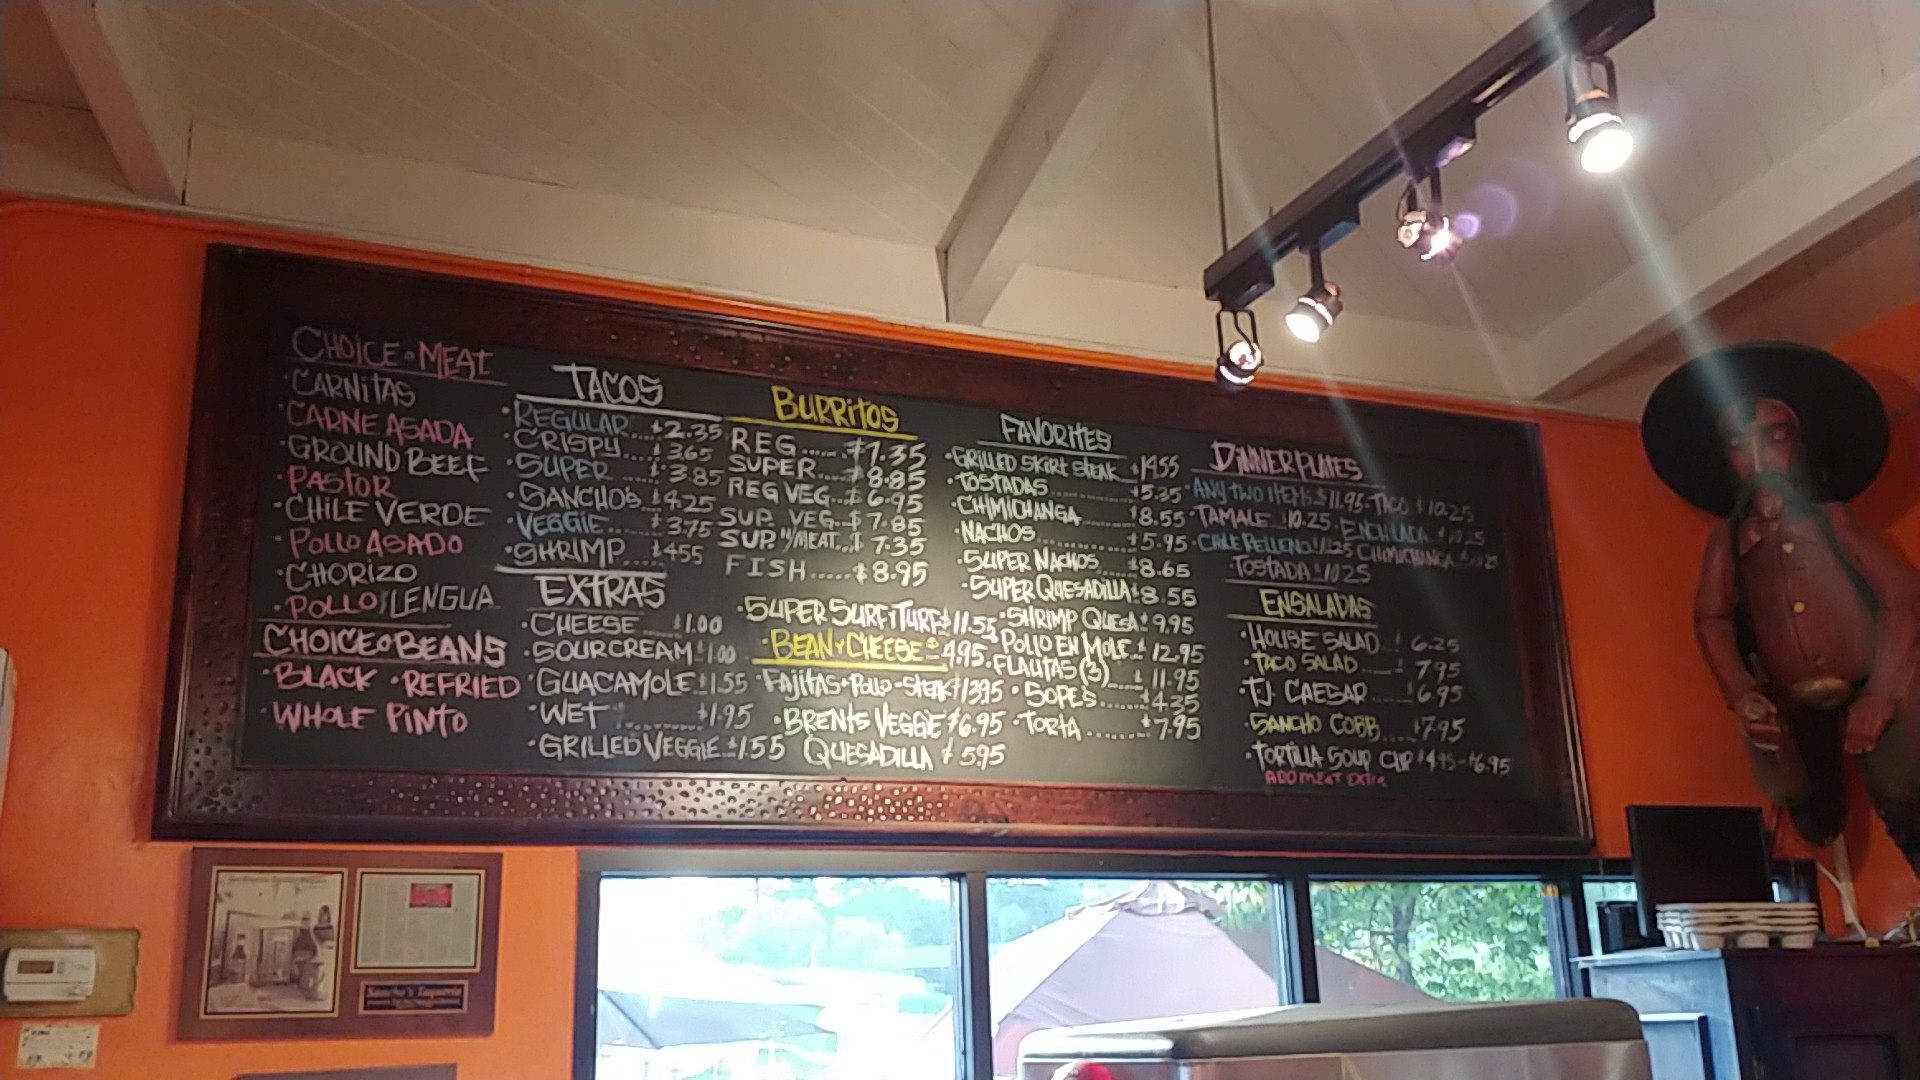 CHOICE OF MEAT
· CARNITAS
· CARNE ASADA
· GROUND BEEF
· PASTOR
· CHILE VERDE
· POLLO ASADO
· CHORIZO
· POLLO LENGUA
CHOICE OF BEANS
· BLACK · REFRIED
· WHOLE PINTO
TACOS
· REGULAR.... $2.35
· CRISPY.... $3.65
· SUPER .... $3.85
· SANCHOS .. $4.25
· VEGGIE .... $3.75
· SHRIMP.... $4.55
EXTRAS
· CHEESE .... $1.00
· SOUR CREAM $1.00
· GUACAMOLE $1.55
· WET .......... $1.95
· GRILLED VEGGIE..$1.55
BURRITOS
REG...... $7.35
SUPER...... $8.85
REG VEG... $6.95
SUP. VEG... $7.85
SUP. W/MEAT... $7.35
FISH..... $8.95
· SUPER SURF & TURF $11.55
· BEAN & CHEESE 4.95
· FAJITAS · POLLO - STEAK $13.95
· BRENTS VEGGIE $6.95
QUESADILLA $5.95
FAVORITES
· GRILLED SKIRT STEAK $14.55
· TOSTADAS.......... $5.35
· CHIMICHANGA........ $8.55
· NACHOS............ $5.95
· SUPER NACHOS.... $8.65
· SUPER QUESADILLA $8.55
· SHRIMP QUESA $9.95
· POLLO EN MOLE $12.95
· FLAUTAS (3).... $11.95
· SOPES ...... $4.35
· TORTA ........ $7.95
DINNER PLATES
· ANY TWO ITEMS $11.95 · TACO $10.25
· TAMALE $10.25 · ENCHILADA $10.25
· CHILE RELLENO $11.25 CHIMICHANGA $10.25
· TOSTADA $10.25
ENSALADAS
· HOUSE SALAD ... $6.25
· TACO SALAD ..... $7.95
· TJ CAESAR ..... $6.95
· SANCHO COBB ... $7.95
· TORTILLA SOUP CUP $4.95 - $6.95
ADD MEAT EXTRA
Sancho's Taqueria